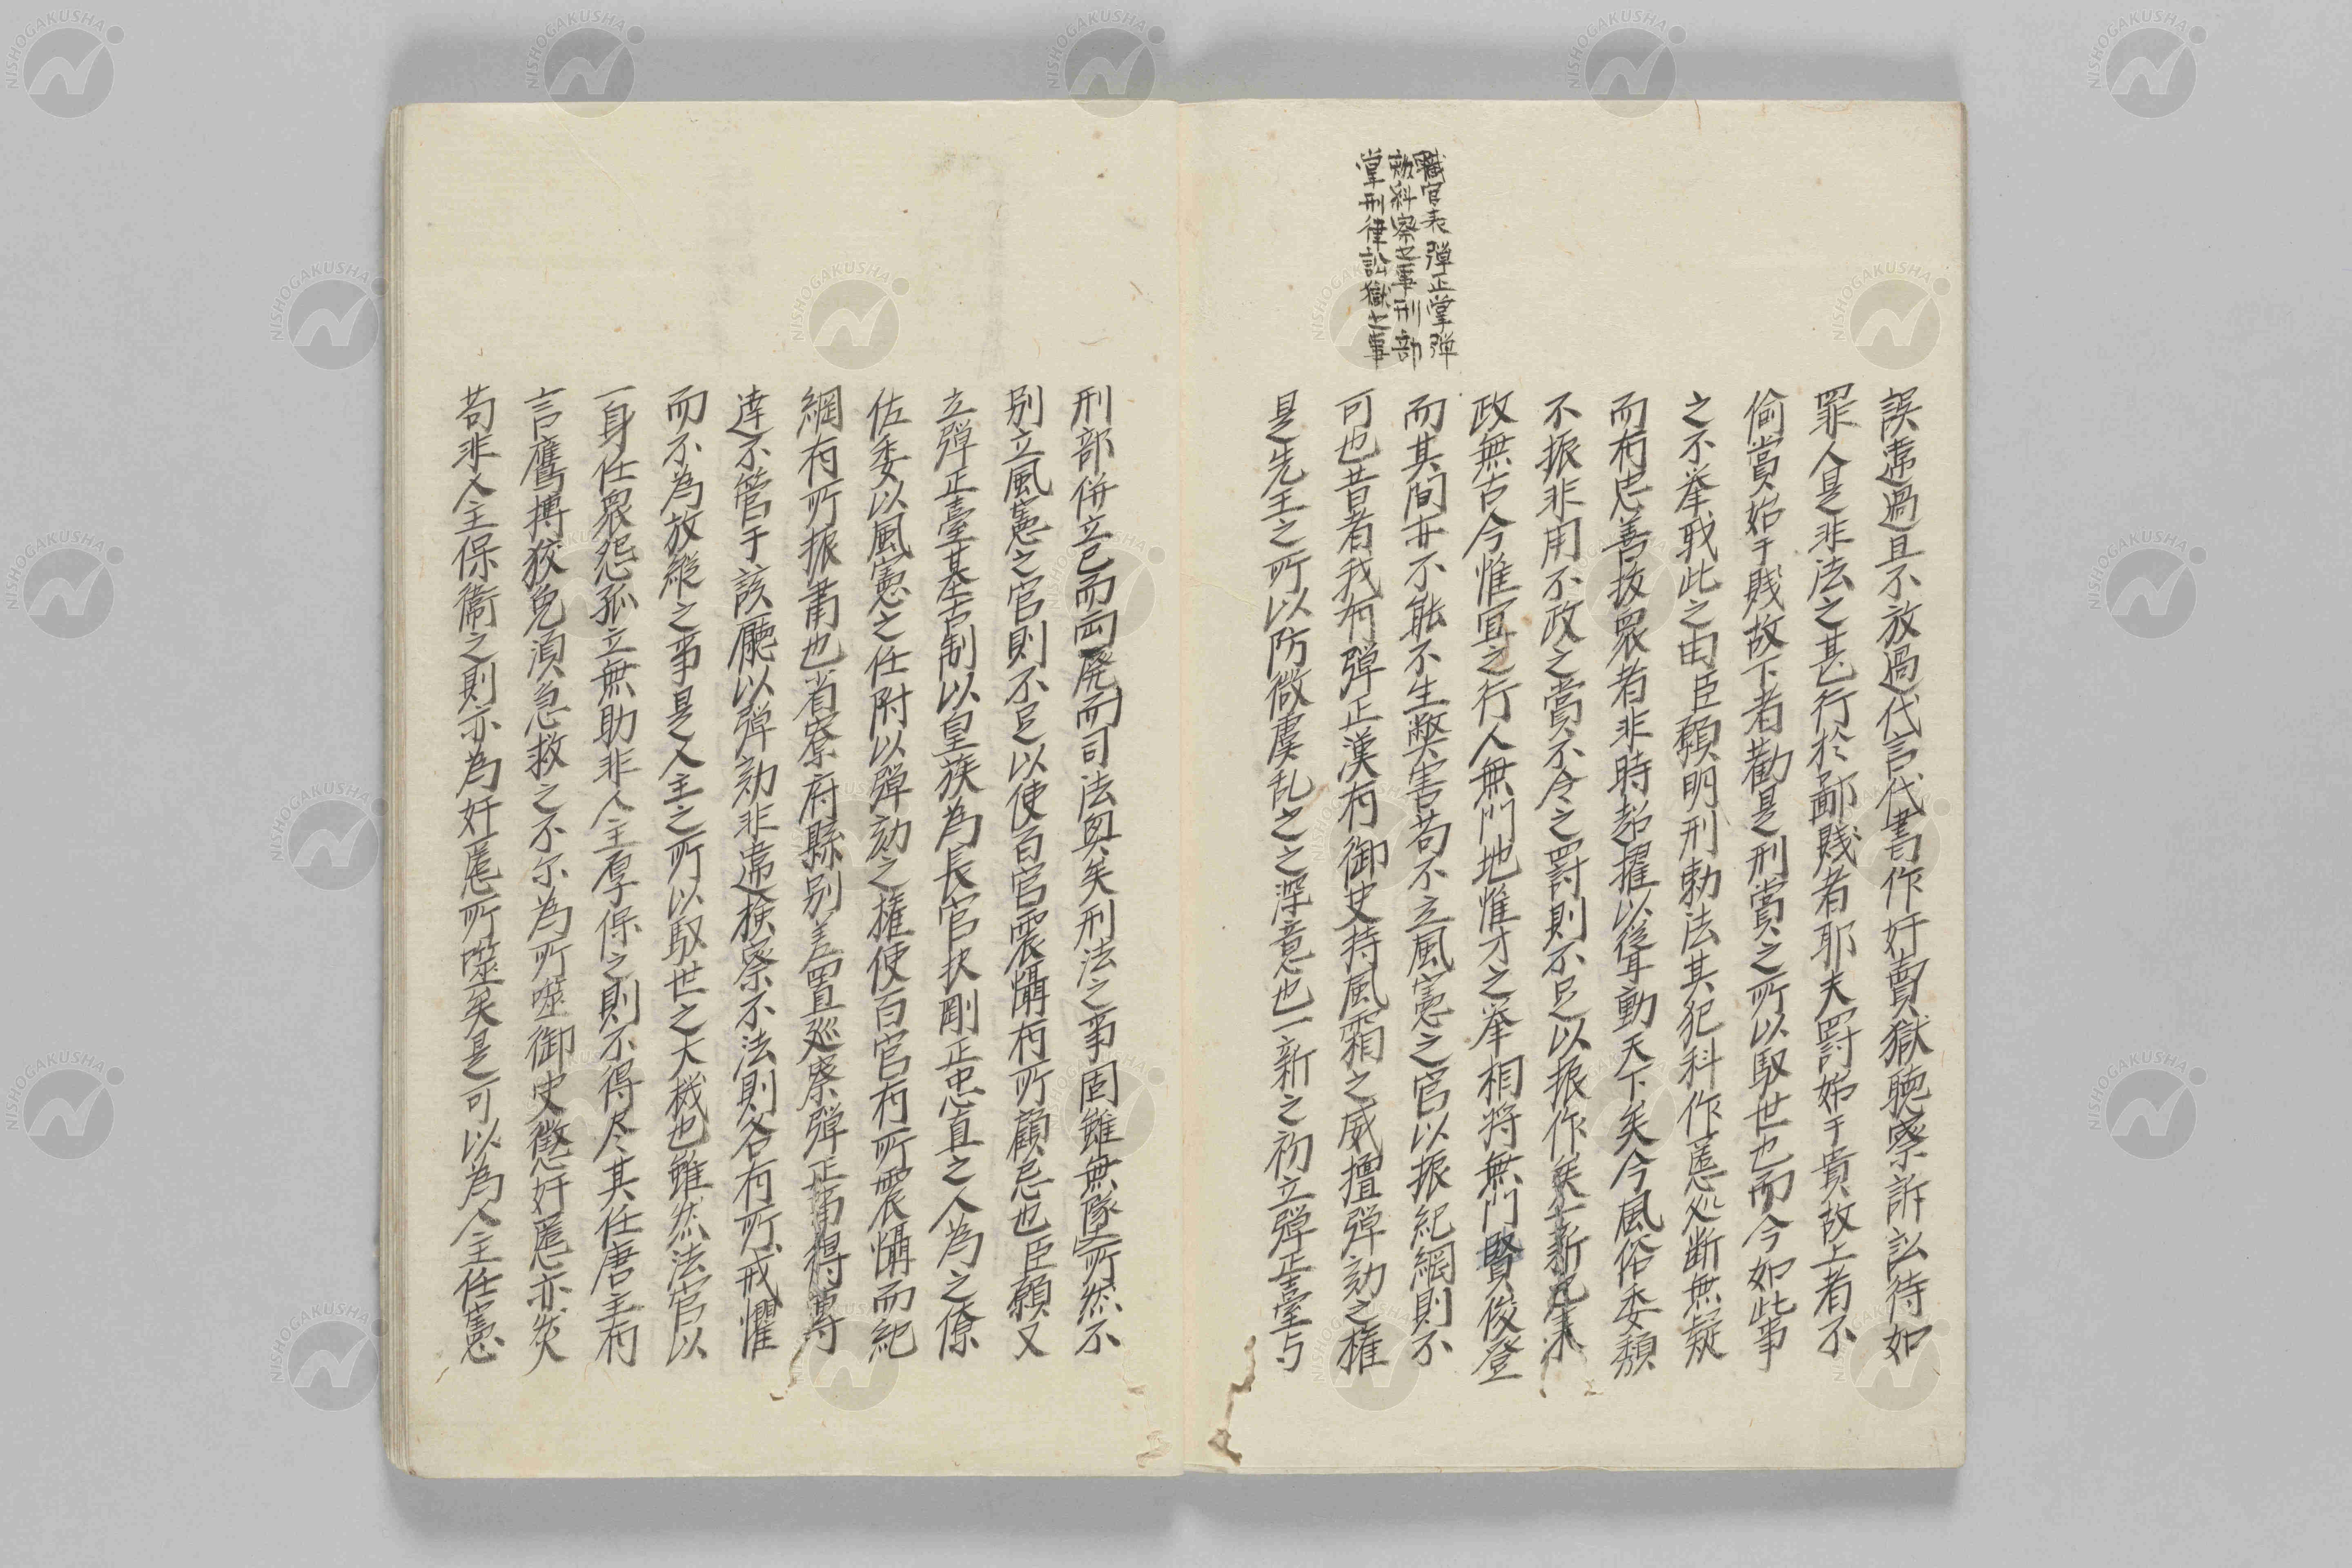 職官表 弾正掌弾
劾糾察之事刑部
掌刑律訟獄之事
誤違過且不放過代言代書作奸賣獄聴察訴訟待如
罪人是非法之甚行於鄙賤者耶夫罰始于貴故上者不
偷賞始于賤故下者勸是刑賞之所以馭世也而今如此事
之不挙職此之由臣願明刑勅法其犯科作慝処断無疑
而有忠善抜衆者非時超擢以聳動天下矣今風俗委頽
不振非用不政之賞不令之罰則不足以振作矣一新已来
政無古今惟宜之行人無門地惟才之挙相将無門賢俊登
而其間亦不能不生弊害苟不立風憲之官以振紀綱則不
可也昔者我有弾正漢有御史持風霜之威擅弾劾之権
是先王之所以防微虞乱之之深意也一新之初立弾正臺与
刑部併立已而両廃而司法興矣刑法之事固雖無墜所然不
別立風憲之官則不足以使百官震慴有所顧忌也臣願又
立弾正臺基古制以皇族為長官択剛正忠直之人為之僚
佐委以風憲之任附以弾劾之権使百官有所震慴而紀
綱有所振粛也省寮府縣別差置巡察弾正常得專
達不管于該廳以弾劾非違検察不法則各有所戒懼
而不為放縦之事是人主之所以馭世之大機也雖然法官以
一身任衆怨孤立無助非人主厚保之則不得尽其任唐主有
言鷹搏狡兎須急救之不尓為所噬御史懲奸慝亦然
苟非人主保衛之則亦為奸慝所噬矣是可以為人主任憲